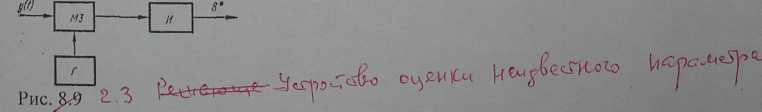 y(t) МЗ И В*
Г
Рис. 8.9 2.3 Решающее Устройство оценки неизвестного параметра